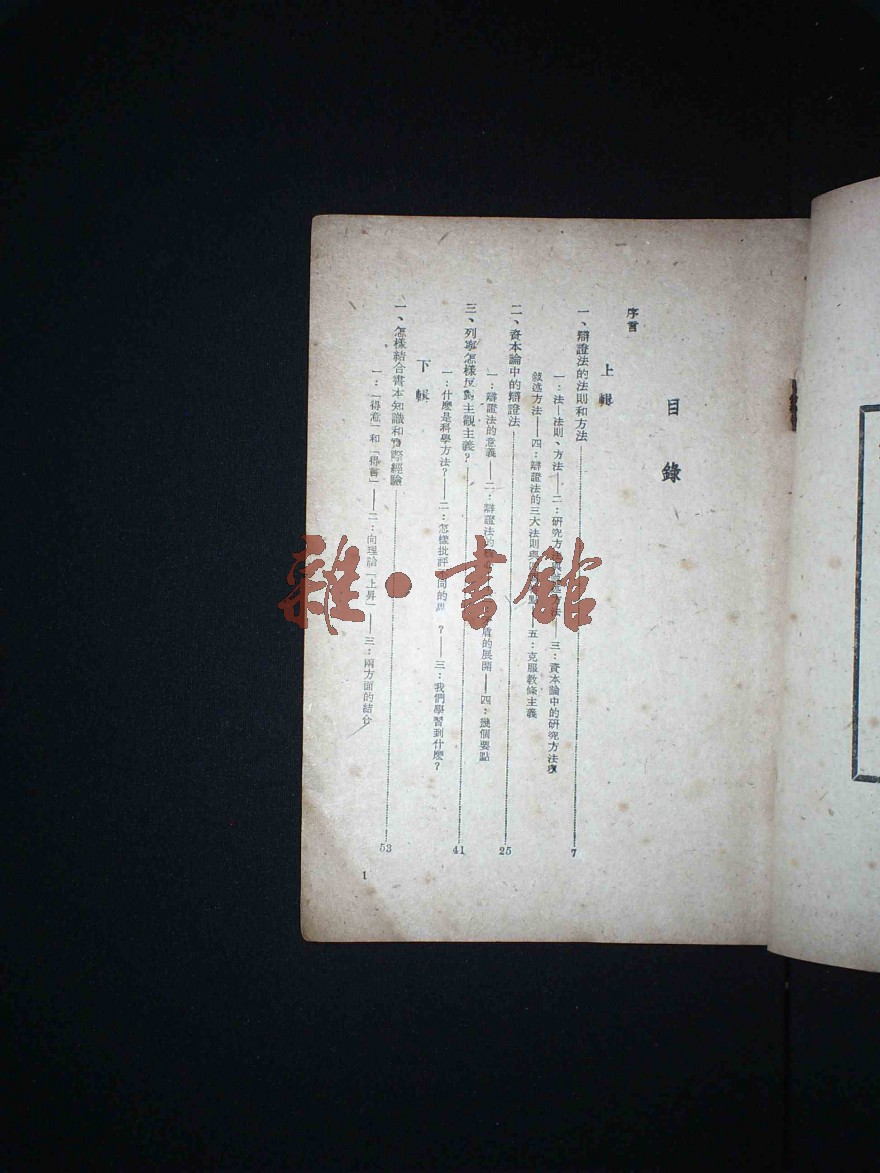 目錄
序言
上輯
一、辯證法的法則和方法 7
一：法—法則、方法——二：研究方法 法——三：資本論中的研究方法
敘述方法——四：辯證法的三大法則與 點——五：克服敎條主義
二、資本論中的辯證法 25
一：辯證法的意義——二：辯證法的 盾的展開——四：幾個要點
三、列寧怎樣反對主觀主義？ 41
一：什麽是科學方法？——二：怎樣批評 同的 ？——三：我們學習到什麽？
下輯
一、怎樣結合書本知識和實際經驗 53
一：「得意」和「得言」——二：向理論「上昇」——三：兩方面的結合
1
雜·書館